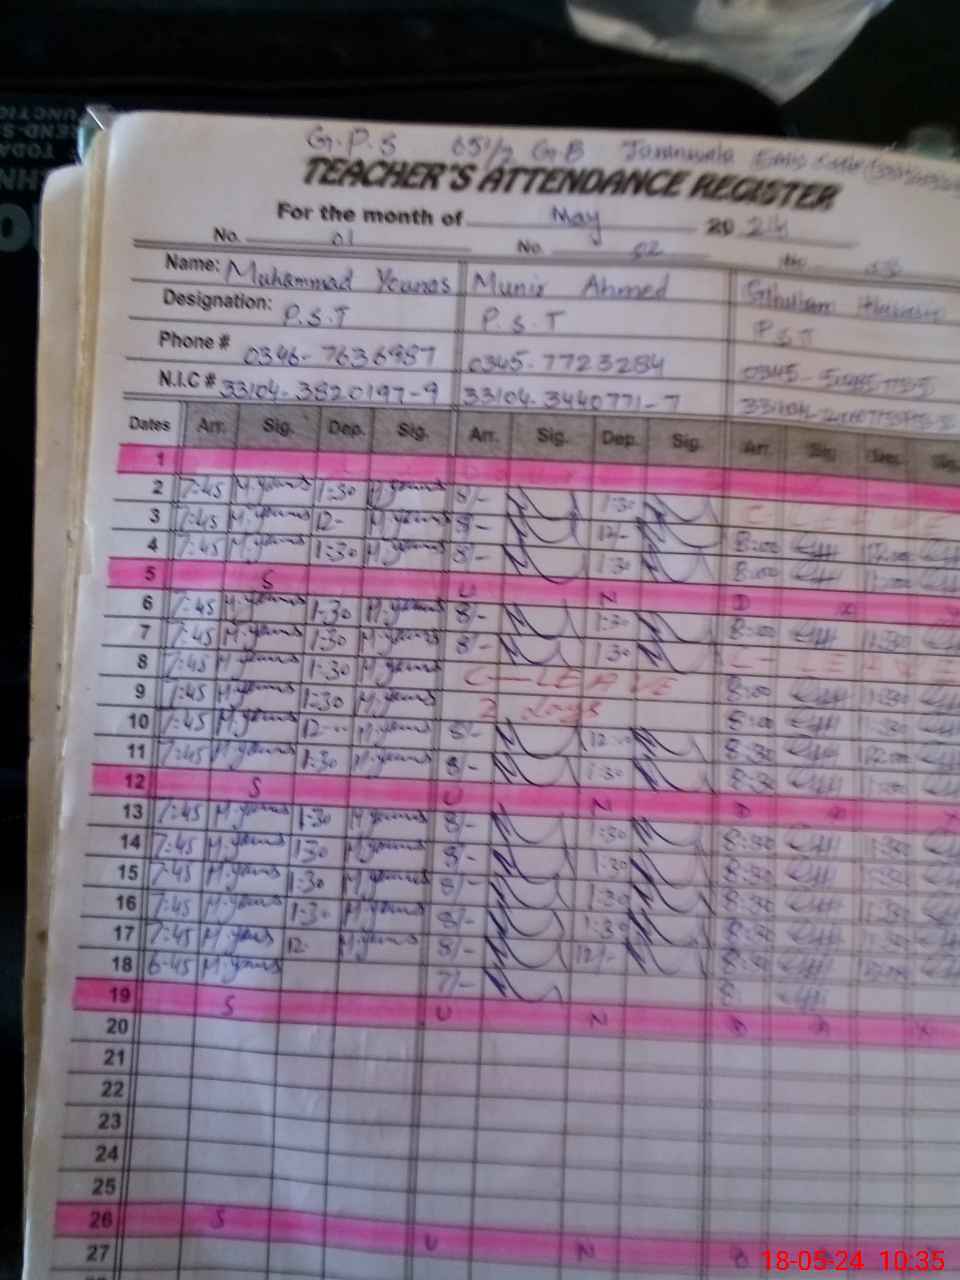 G.P.S 651/2 G.B Jaranwala
TEACHER'S ATTENDANCE REGISTER
For the month of May 2024
No. 01 No. 02 No. 03
Name: Muhammad Younas Munir Ahmed Ghulam
Designation: P.S.T P.S.T P.S.T
Phone # 0346-7636987 0345-7723284 0345-
N.I.C # 33104-3820197-9 33104-3440771-7
Dates Arr. Sig. Dep. Sig. Arr. Sig. Dep. Sig. Arr. Sig.
1
2 7:45 M.younas 1:30 M.younas 8/- 1:30 C LEAVE
3 7:45 M.younas 12- M.younas 8/- 12/- 8:00 12:00
4 7:45 M.younas 1:30 M.younas 8/- 1:30 8:00
5 S U N D A Y
6 7:45 M.younas 1:30 M.younas 8/- 1:30 8:00 1:30
7 7:45 M.younas 1:30 M.younas 8/- 1:30 C-LEAVE
8 7:45 M.younas 1:30 M.younas C-LEAVE 8:00 1:30
9 7:45 M.younas 1:30 M.younas 2 days 8:00 1:30
10 7:45 M.younas 12-- M.younas 8/- 12 8:30 12:00
11 7:45 M.younas 1:30 M.younas 8/- 1:30 8:30
12 S U N D A Y
13 7:45 M.younas 1:30 M.younas 8/- 1:30 8:30 1:30
14 7:45 M.younas 130 M.younas 8/- 1:30 8:30 1:30
15 7:45 M.younas 1:30 M.younas 8/- 1:30 8:30 1:30
16 7:45 M.younas 1:30 M.younas 8/- 1:30 8:30 1:30
17 7:45 M.younas 12 M.younas 8/- 12/- 8:30
18 6-45 M.younas 7/- 8
19 S U N D A Y
20
21
22
23
24
25
26 S U N D
27
18-05-24 10:35